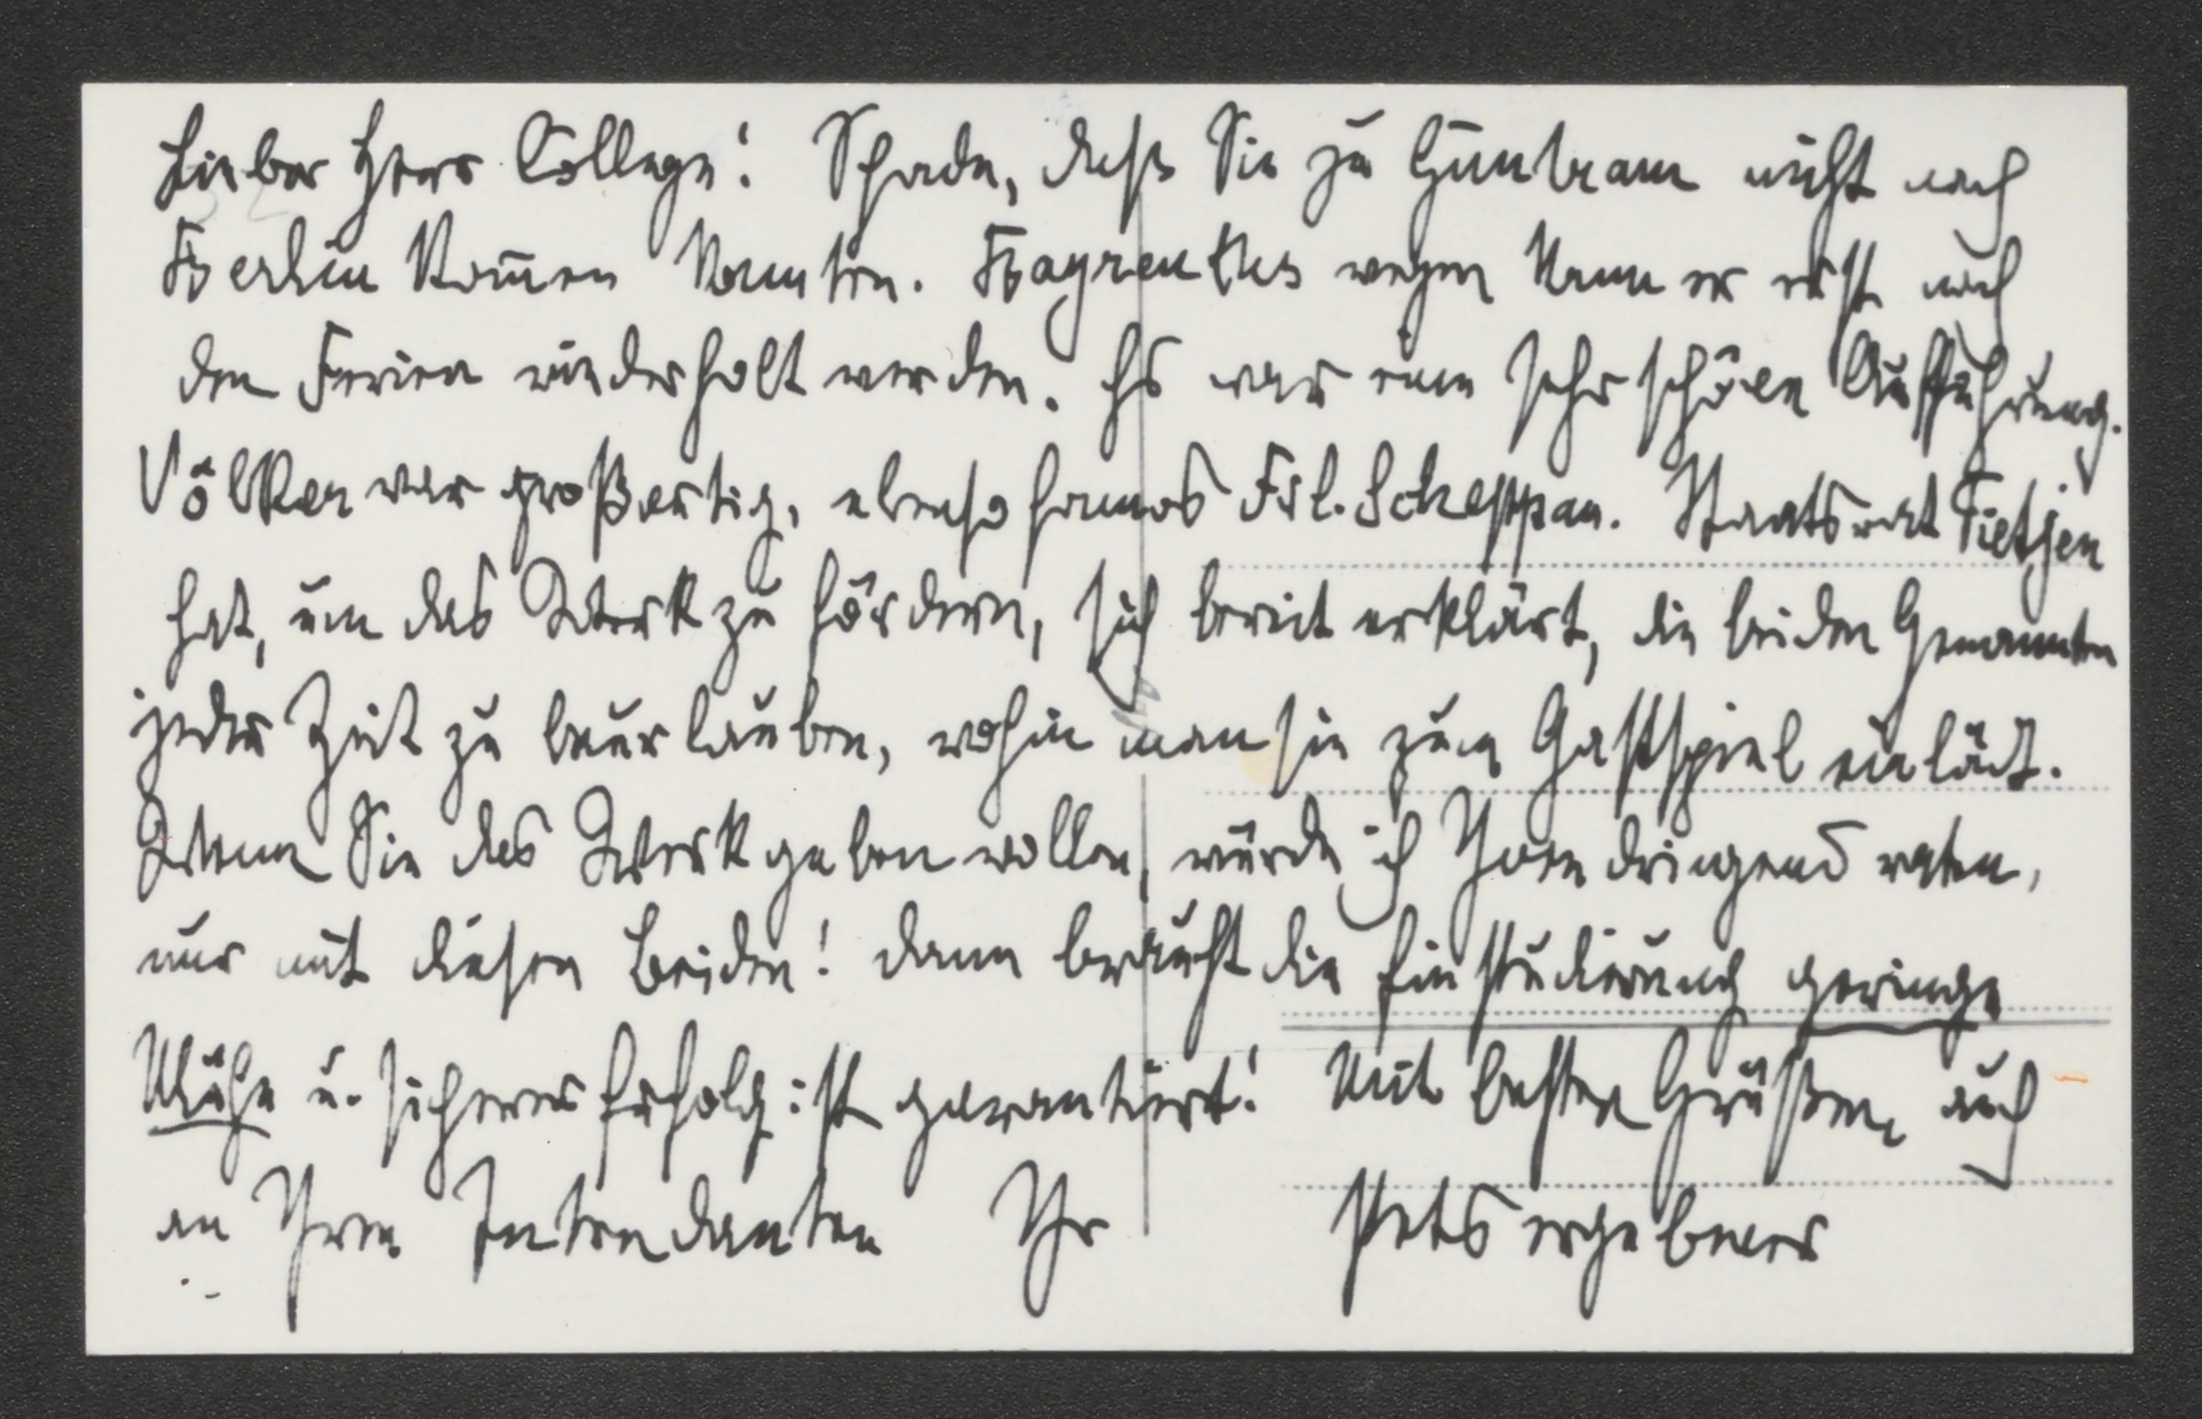 Lieber Herr College! Schade, daß Sie zu Guntram nicht nach
Berlin kom̄en konnten. Bayreuths wegen kann er erst nach
den Ferien wiederholt werden. Es war eine sehr schöne Aufführung.
Völker war großartig, ebenso famos Frl. Scheppan. Staatsrat Tietjen
hat, um das Werk zu fördern, sich bereit erklärt, die beiden Genannten
jeder Zeit zu beurlauben, wohin man sie zum Gastspiel einlädt.
Wenn Sie das Werk geben wollen, würde ich Ihnen dringend raten,
nur mit diesen Beiden! Dann braucht die Einstudierung geringe
Mühe u. sicherer Erfolg ist garantiert! Mit besten Grüßen, auch
an Ihren Intendanten Ihr stets ergebener